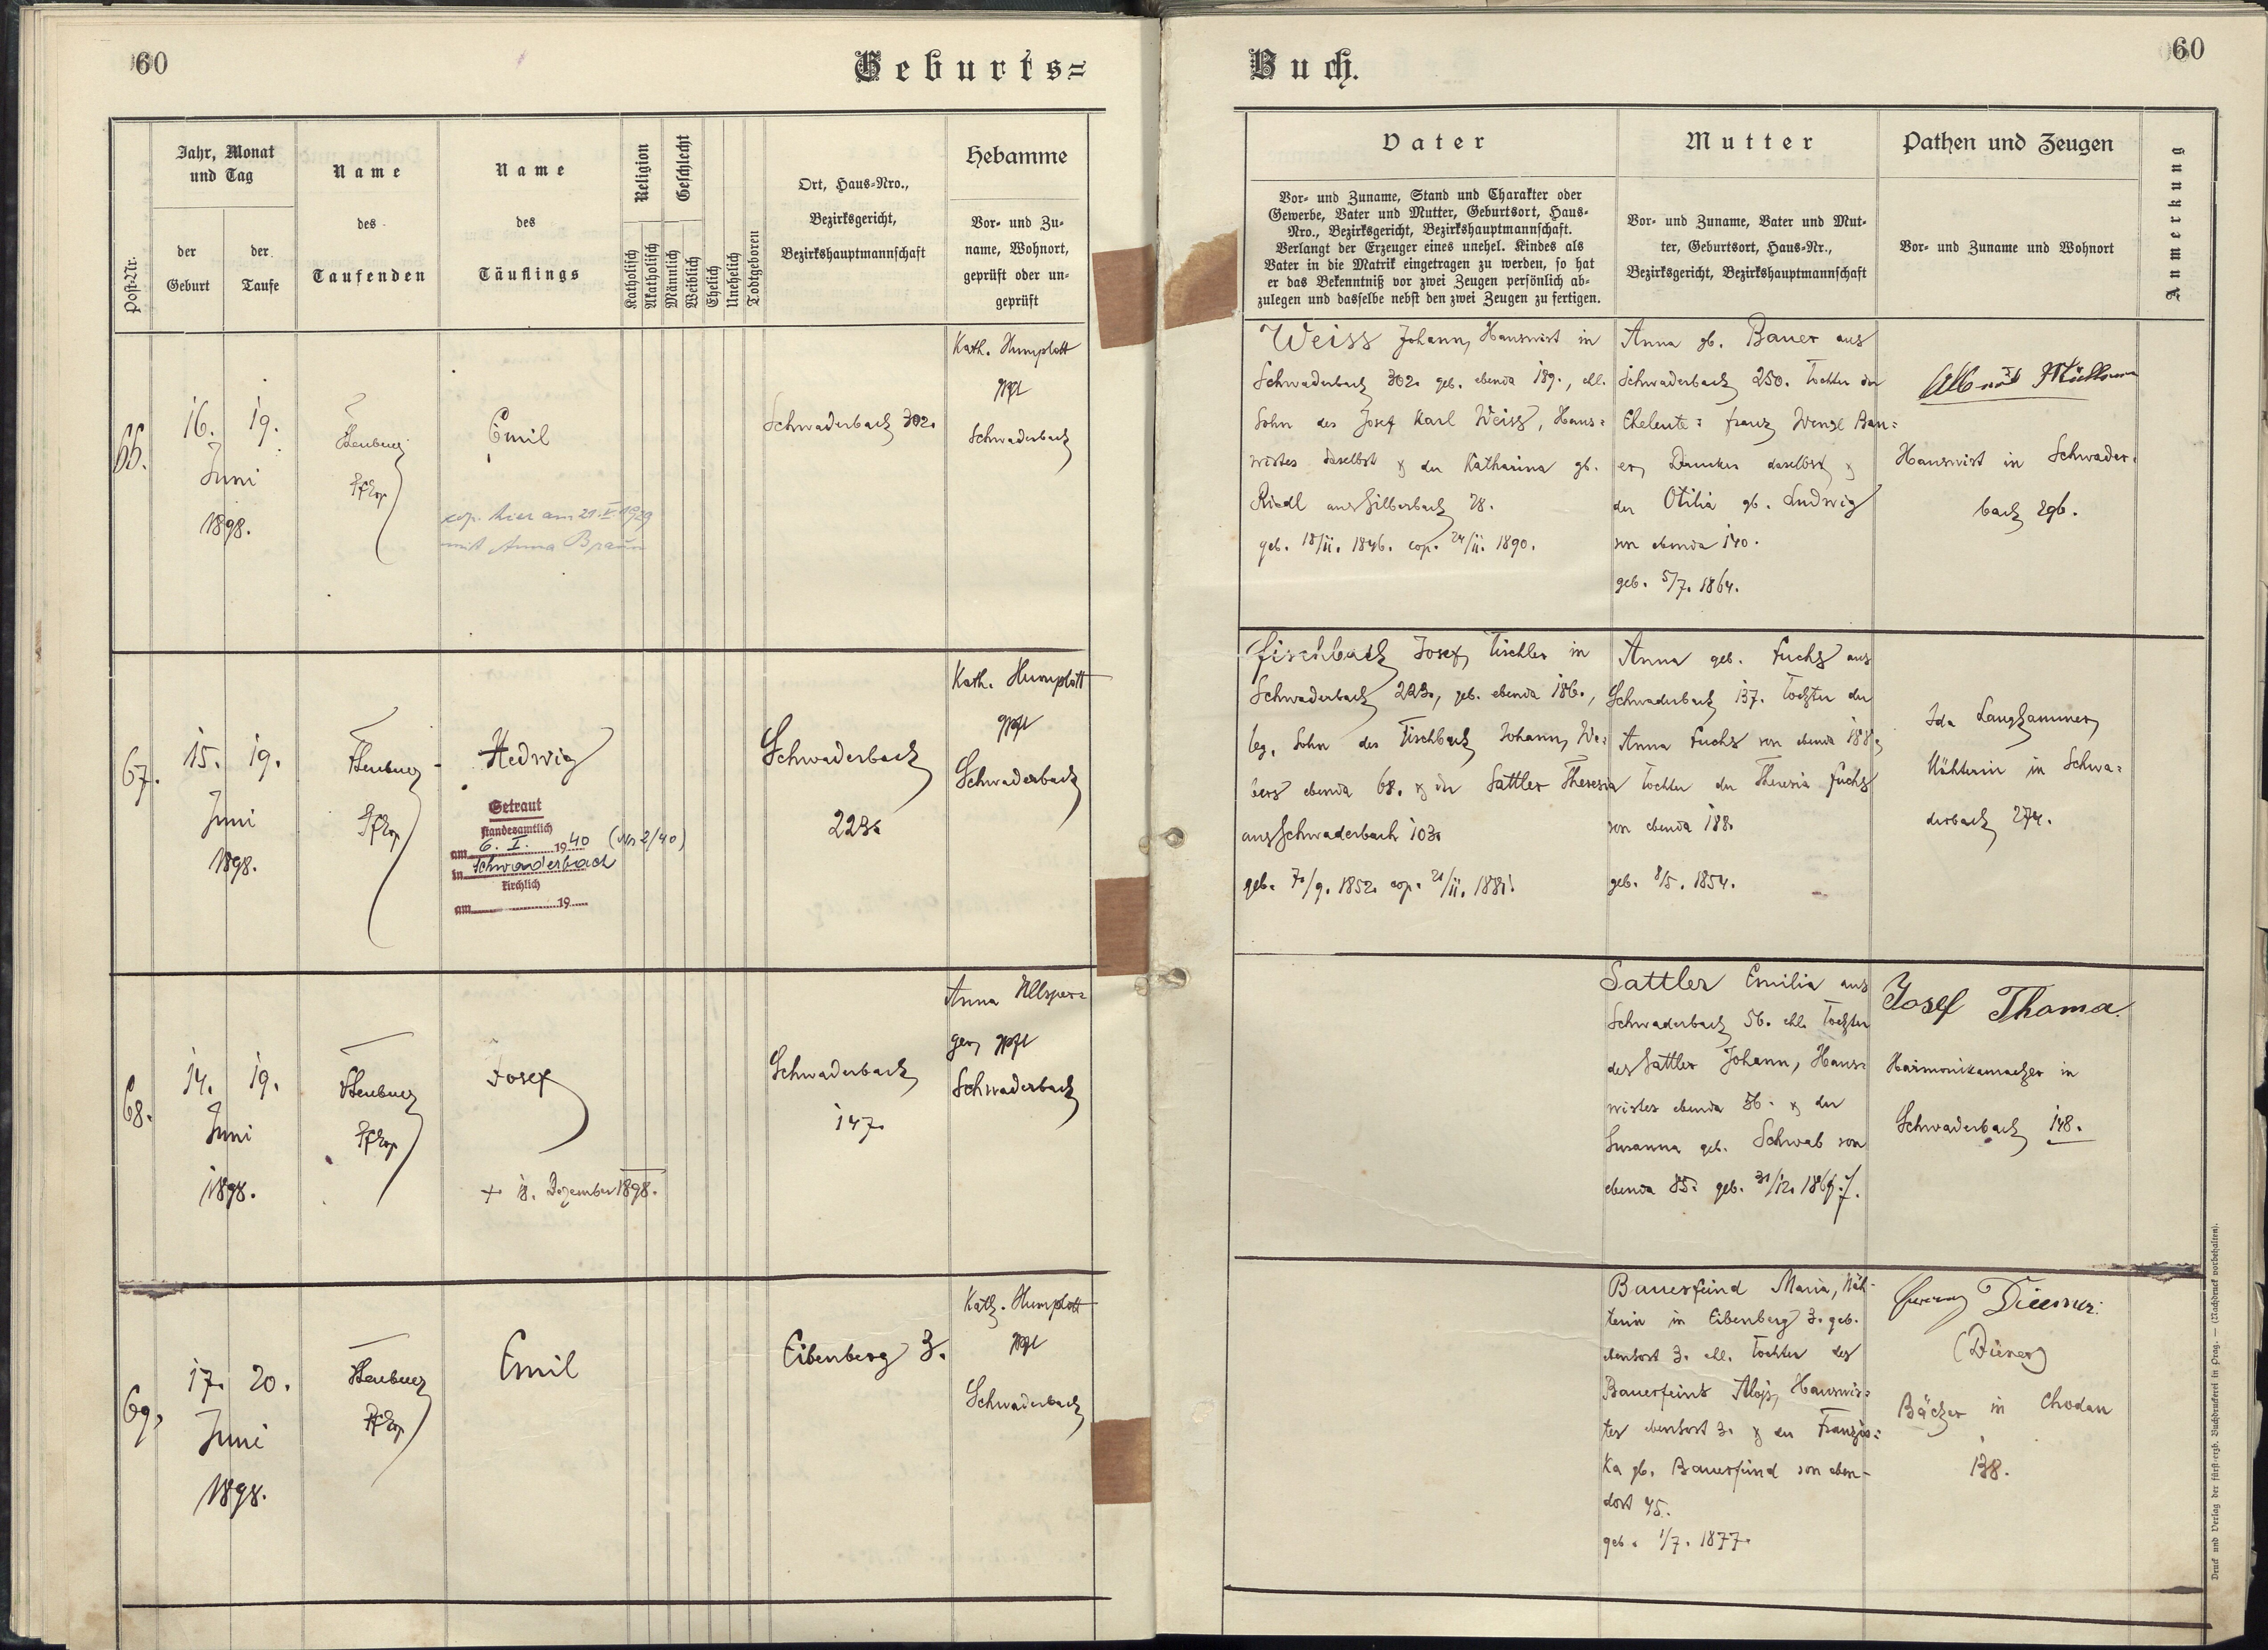 60
Geburts=
Jahr, Monat
und Tag
der
Geburt
der
Taufe
Post-Nr.
Name
des
Taufenden
Name
des
Täuflings
Religion
Katholisch
Akatholisch
Geschlecht
Männlich
Weiblich
Ehelich
Unehelich
Todtgeboren
Ort, Haus-Nro.,
Bezirksgericht,
Bezirkshauptmannschaft
Hebamme
Vor- und Zu-
name, Wohnort,
geprüft oder un-
geprüft
66.
16.
19.
Juni
1898.
Emil
cop. hier am 21.V.1929
mit Anna Braun
Schwaderbach 302.
Kath. Humplott
gpft
Schwaderbach
67.
15.
19.
Juni
1898.
Hedwig
Getraut
standesamtlich
am 6. I. 1940 (Nr 2/40)
in Schwaderbach
kirchlich
am 19
Schwaderbach
223.
Kath. Humplott
gpft
Schwaderbach
68.
14.
19.
Juni
1898.
Josef
+ 18. Dezember 1898.
Schwaderbach
147.
Anna Ullsper=
ger, gpft
Schwaderbach
69.
17.
20.
Juni
1898.
Emil
Eibenberg 3.
Kath. Humplott
gpft
Schwaderbach
Buch.
60
Vater
Vor- und Zuname, Stand und Charakter oder
Gewerbe, Vater und Mutter, Geburtsort, Haus-
Nro., Bezirksgericht, Bezirkshauptmannschaft.
Verlangt der Erzeuger eines unehel. Kindes als
Vater in die Matrik eingetragen zu werden, so hat
er das Bekenntniß vor zwei Zeugen persönlich ab-
zulegen und dasselbe nebst den zwei Zeugen zu fertigen.
Mutter
Vor- und Zuname, Vater und Mut-
ter, Geburtsort, Haus-Nr.,
Bezirksgericht, Bezirkshauptmannschaft
Pathen und Zeugen
Vor- und Zuname und Wohnort
Anmerkung
Weiss Johann, Hauswirt in
Schwaderbach 302. geb. ebenda 189., ehl.
Sohn des Josef Karl Weiss, Haus=
wirtes daselbst & der Katharina gb.
Riedl aus Silberbach 78.
geb. 18/11. 1846. cop. 24/11. 1890.
Anna gb. Bauer aus
Schwaderbach 250. Tochter der
Eheleute: Franz Wenzl Bau=
er, Drucker daselbst &
der Otilia gb. Ludwig
von ebenda 140.
geb. 5/7. 1864.
Hauswirt in Schwader.
bach 296.
Fischbach Josef, Tischler in
Schwaderbach 223., geb. ebenda 186.,
leg. Sohn des Fischbach Johann, We=
bers ebenda 68. & der Sattler Theresia
aus Schwaderbach 103.
geb. 7./9. 1852. cop. 21/11. 1881.
Anna geb. Fuchs aus
Schwaderbach 137. Tochter der
Anna Fuchs von ebenda 188,
Tochter der Theresia Fuchs
von ebenda 188.
geb. 8/5. 1854.
Ida Langhammer,
Nähterin in Schwa=
derbach 274.
Sattler Emilia aus
Schwaderbach 56. ehl. Tochter
des Sattler Johann, Haus=
wirtes ebenda 56. & der
Susanna geb. Schwab von
ebenda 85. geb. 31/12. 1867.
Josef Thoma.
Harmonikamacher in
Schwaderbach 148.
Bauerfeind Maria, Näh-
terin in Eibenberg 3. geb.
ebendort 3. ehl. Tochter des
Bauerfeind Alojs, Hauswir=
tes ebendort 3. & der Franzis=
ka gb. Bauerfeind von eben-
dort 45.
geb. 1/7. 1877.
(Diener)
Bäcker in Chodau
138.
Druck und Verlag der fürst-erzb. Buchdruckerei in Prag. — (Nachdruck vorbehalten).